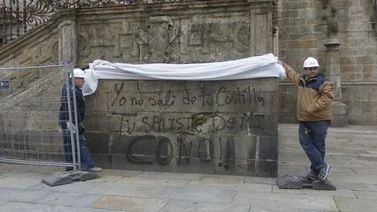 Yo no sali de tu Costilla
TU SALISTE DE MI
COÑO!!